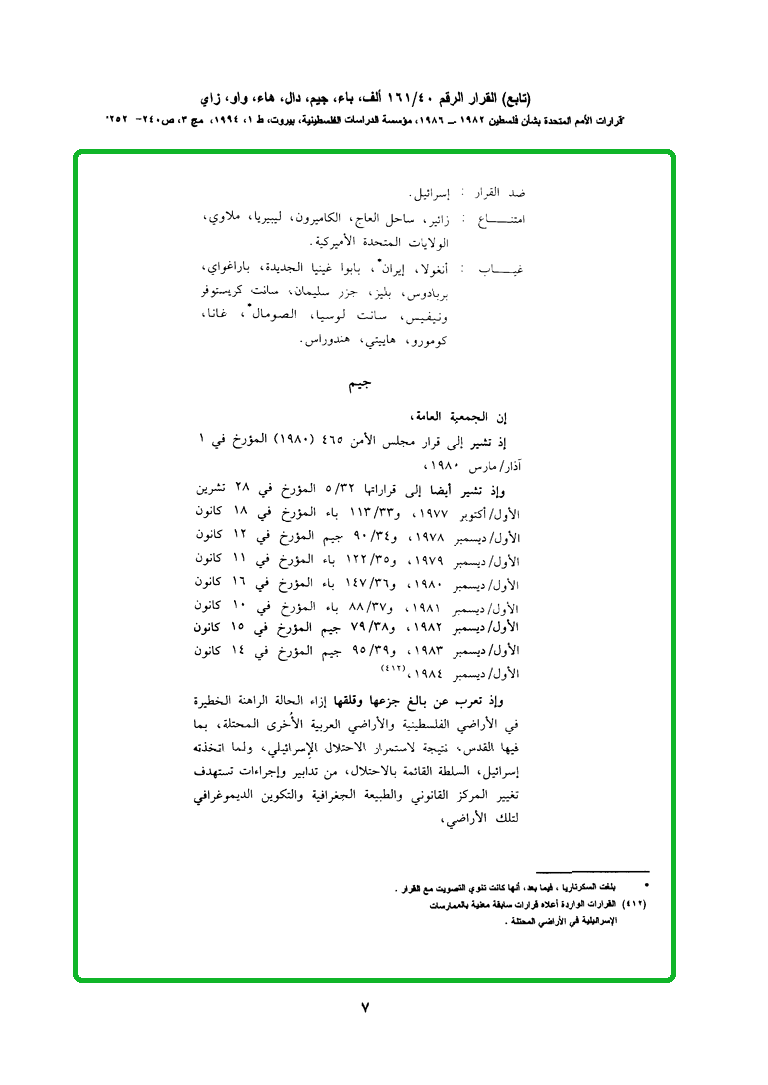 (تابع) القرار الرقم ١٦١/٤٠ ألف، باء، جيم، دال، هاء، واو، زاي
"قرارات الأمم المتحدة بشأن فلسطين ١٩٨٢ ــ ١٩٨٦، مؤسسة الدراسات الفلسطينية، بيروت، ط ١، ١٩٩٤، مج ٣، ص٢٤٠- ٢٥٢"
ضد القرار : إسرائيل.
امتنـــــاع : زائير، ساحل العاج، الكاميرون، ليبيريا، ملاوي،
الولايات المتحدة الأميركية.
غيـــــاب : أنغولا، إيران*، بابوا غينيا الجديدة، باراغواي،
بربادوس، بليز، جزر سليمان، سانت كريستوفر
ونيفيس، سانت لوسيا، الصومال*، غانا،
كومورو، هاييتي، هندوراس.
جيم
إن الجمعية العامة،
إذ تشير إلى قرار مجلس الأمن ٤٦٥ (١٩٨٠) المؤرخ في ١
آذار/مارس ١٩٨٠،
وإذ تشير أيضا إلى قراراتها ٥/٣٢ المؤرخ في ٢٨ تشرين
الأول/أكتوبر ١٩٧٧، و١١٣/٣٣ باء المؤرخ في ١٨ كانون
الأول/ديسمبر ١٩٧٨، و٩٠/٣٤ جيم المؤرخ في ١٢ كانون
الأول/ديسمبر ١٩٧٩، و١٢٢/٣٥ باء المؤرخ في ١١ كانون
الأول/ديسمبر ١٩٨٠، و١٤٧/٣٦ باء المؤرخ في ١٦ كانون
الأول/ديسمبر ١٩٨١، و٨٨/٣٧ باء المؤرخ في ١٠ كانون
الأول/ديسمبر ١٩٨٢، و٧٩/٣٨ جيم المؤرخ في ١٥ كانون
الأول/ديسمبر ١٩٨٣، و٩٥/٣٩ جيم المؤرخ في ١٤ كانون
الأول/ديسمبر ١٩٨٤،(٤١٢)
وإذ تعرب عن بالغ جزعها وقلقها إزاء الحالة الراهنة الخطيرة
في الأراضي الفلسطينية والأراضي العربية الأخرى المحتلة، بما
فيها القدس، نتيجة لاستمرار الاحتلال الإسرائيلي، ولما اتخذته
إسرائيل، السلطة القائمة بالاحتلال، من تدابير وإجراءات تستهدف
تغيير المركز القانوني والطبيعة الجغرافية والتكوين الديموغرافي
لتلك الأراضي،
* بلغت السكرتاريا ، فيما بعد، أنها كانت تنوي التصويت مع القرار .
(٤١٢) القرارات الواردة أعلاه قرارات سابقة معنية بالممارسات
الإسرائيلية في الأراضي المحتلة .
٧